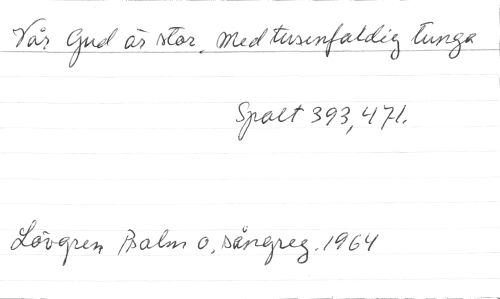 Vår Gud är stor. Med tusenfaldig tunga
Spalt 393, 471.
Lövgren Psalm o. sångreg. 1964